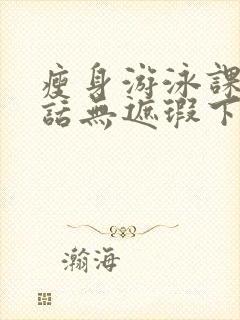 瘦身游泳課
話無遮瑕下
瀚海